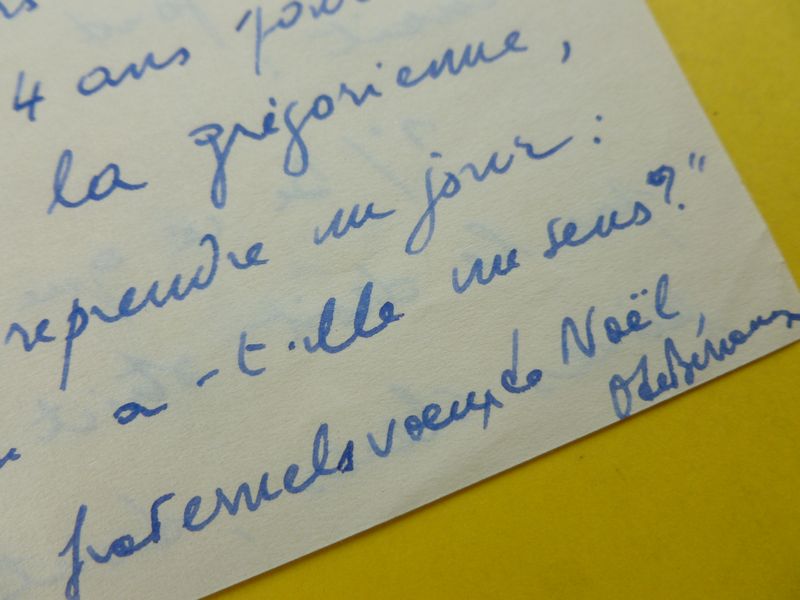 4 ans
la grégorienne,
reprendre un jour :
a-t-elle un sens ?"
fraternels voeux de Noël,